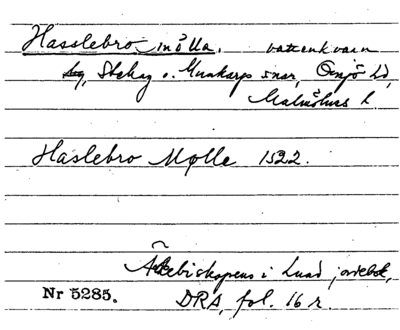 Hasslebro mölla, vattenkvarn
Stehag o. Munkarps snar, Onsjö hd,
Malmöhus l.
Haslebro Mølle 1522.
Ärkebiskopens i Lund jordebok,
Nr 5285.
DRA, fol. 16 r.